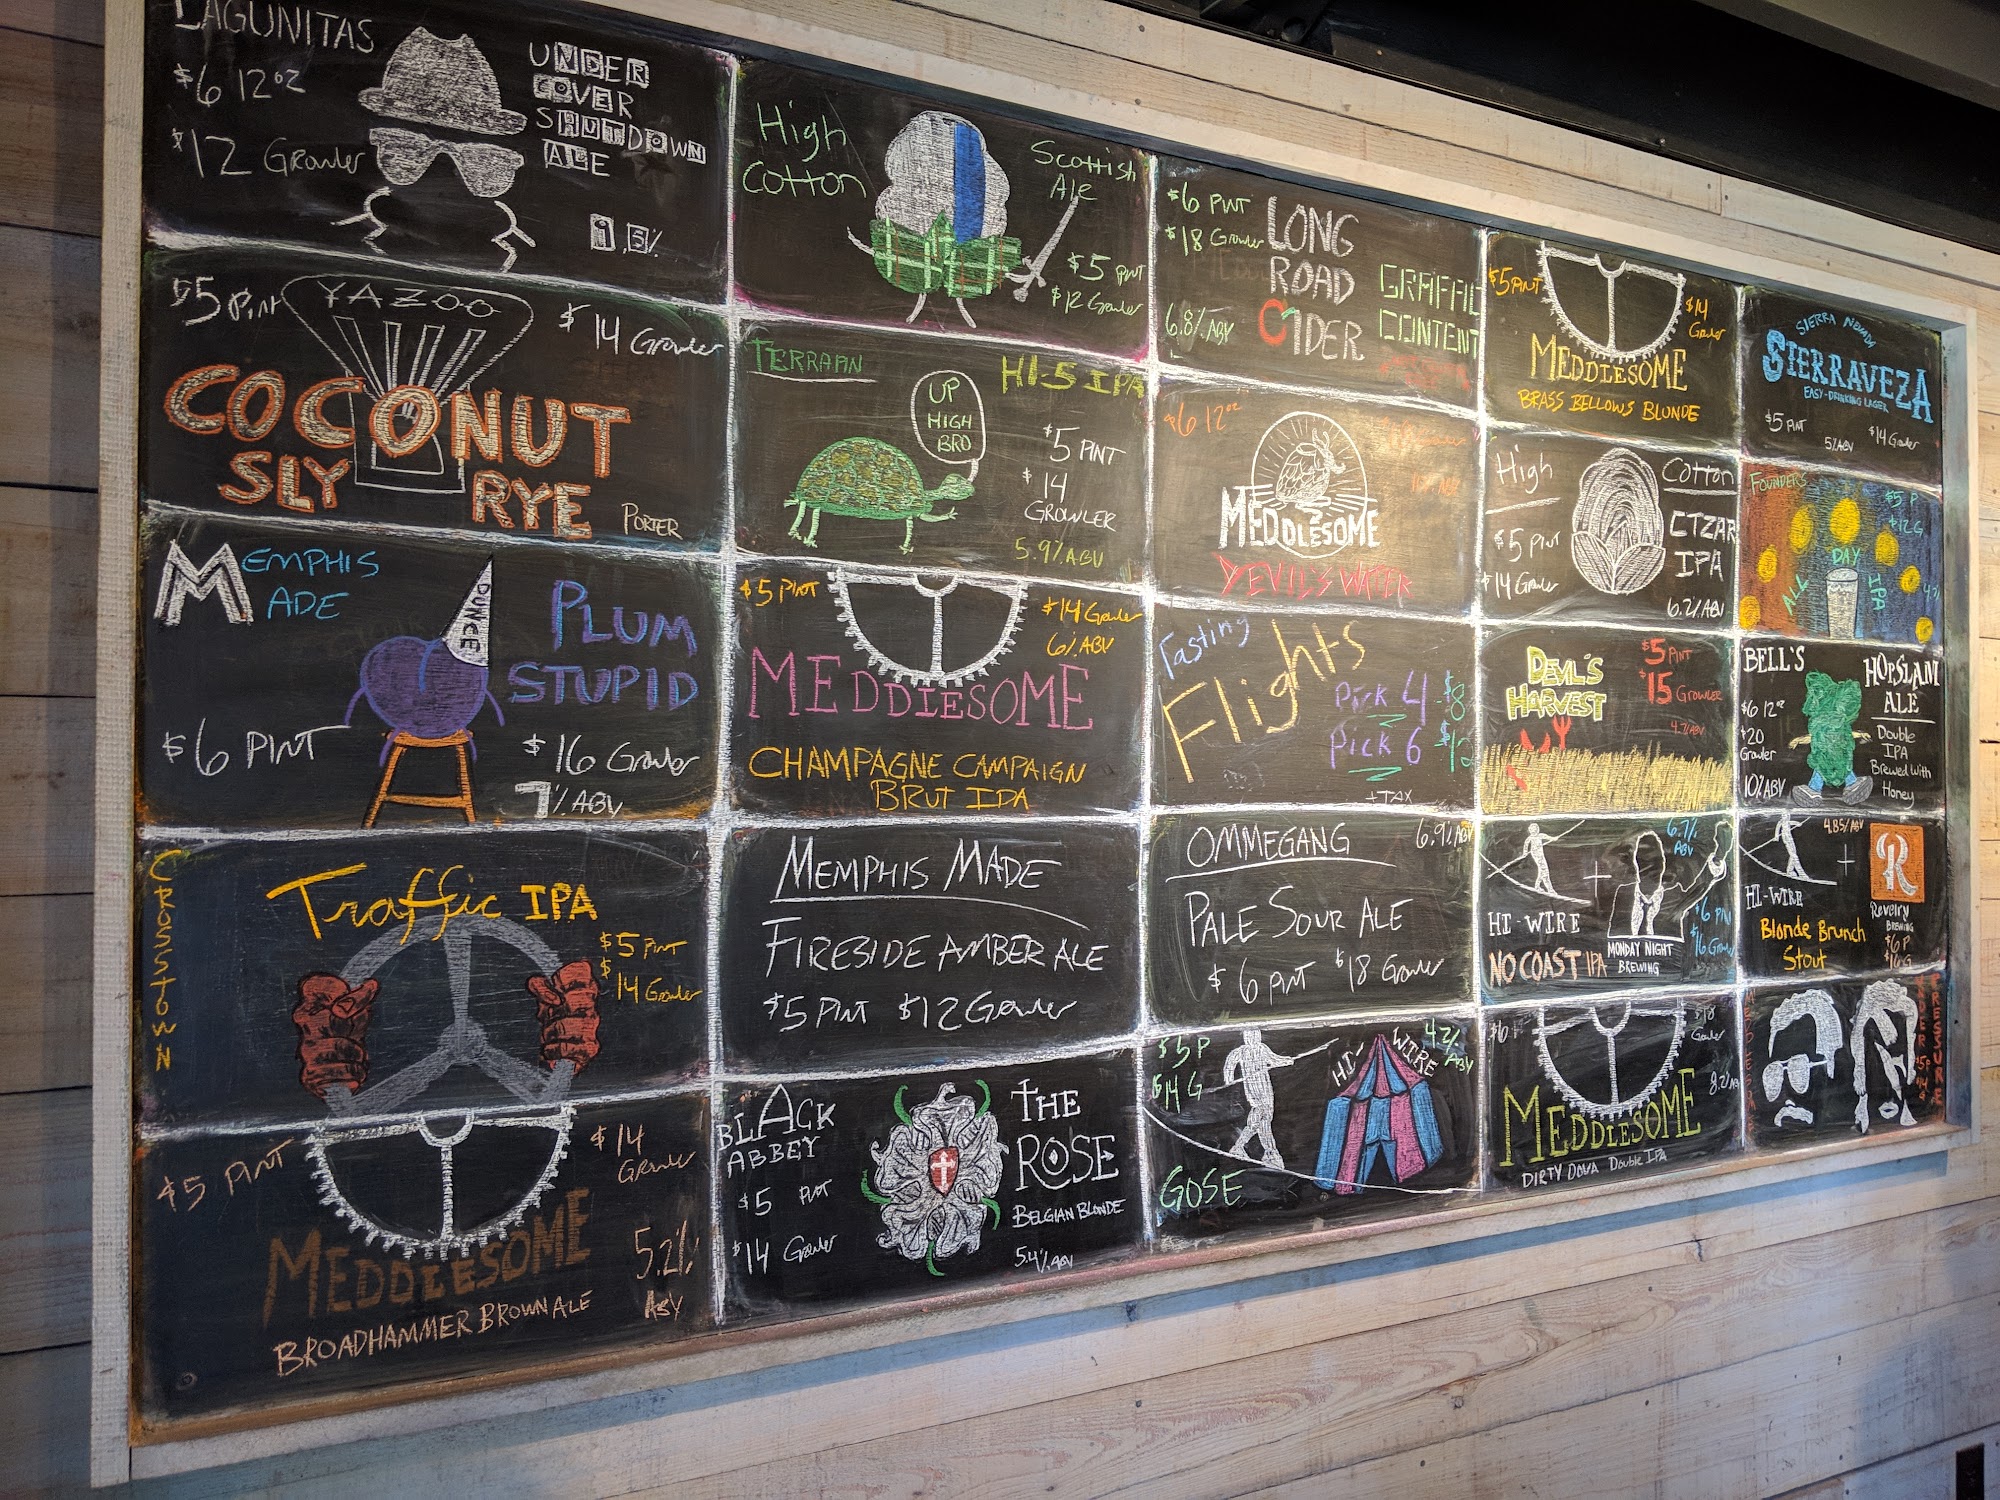 LAGUNITAS
$6 12oz
$12 Growler
UNDER
COVER
SHUTDOWN
ALE
$5 Pint
YAZOO
$14 Growler
COCONUT
SLY RYE
PORTER
MEMPHIS
MADE
DUNCE
PLUM
STUPID
$6 PINT
$16 Growler
7% ABV
CROSSTOWN
Traffic IPA
$5 PINT
$14 Growler
$5 PINT
$14
Growler
MEDDLESOME
5.2%
ABV
BROADHAMMER BROWN ALE
High
Cotton
Scottish
Ale
$5 PINT
$12 Growler
TERRAPIN
HI-5 IPA
UP
HIGH
BRO
$5 PINT
$14
GROWLER
5.9% ABV
$5 PINT
$14 Growler
6% ABV
MEDDLESOME
CHAMPAGNE CAMPAIGN
BRUT IPA
MEMPHIS MADE
FIRESIDE AMBER ALE
$5 PINT $12 Growler
BLACK
ABBEY
$5 PINT
$14 Growler
THE
ROSE
BELGIAN BLONDE
5.4% ABV
$6 PINT
$18 Growler
LONG
ROAD
CIDER
6.8% ABV
GRAFFIC
CONTENT
$6 12oz
MEDDLESOME
DEVIL'S WATER
Tasting
Flights
Pick 4 $8
Pick 6 $12
+TAX
OMMEGANG
6.9% ABV
PALE SOUR ALE
$6 PINT $18 Growler
$5 P
$14 G
HI-WIRE
4.2%
ABV
GOSE
$5 PINT
$14
Growler
MEDDLESOME
BRASS BELLOWS BLONDE
High
Cotton
$5 PINT
$14 Growler
CTZAR
IPA
6.2% ABV
DEVIL'S
HARVEST
$5 PINT
$15 Growler
4.7% ABV
6.7%
ABV
+
HI-WIRE
NO COAST IPA
MONDAY NIGHT
BREWING
$6 PIN
$16 Growl
$6
$18
Growler
MEDDLESOME
8.2% ABV
DIRTY DOVA DOUBLE IPA
SIERRA NEVADA
SIERRAVEZA
EASY-DRINKING LAGER
$5 PINT
5% ABV
$14 Growler
FOUNDERS
$5 P
$12 G
ALL DAY IPA
BELL'S
HOPSLAM
ALE
$6 12oz
$20
Growler
10% ABV
Double
IPA
Brewed With
Honey
4.85% ABV
+
R
HI-WIRE
Revelry
BREWING
Blonde Brunch
Stout
$6 P
$16 G